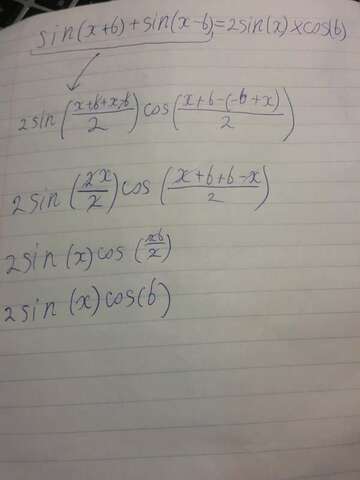 sin(x+b)+sin(x-b)=2sin(x)×cos(b)
2sin((x+b+x-b)/2)cos((x+b-(-b+x))/2)
2sin(2x/2)cos((x+b+b-x)/2)
2sin(x)cos(2b/2)
2sin(x)cos(b)